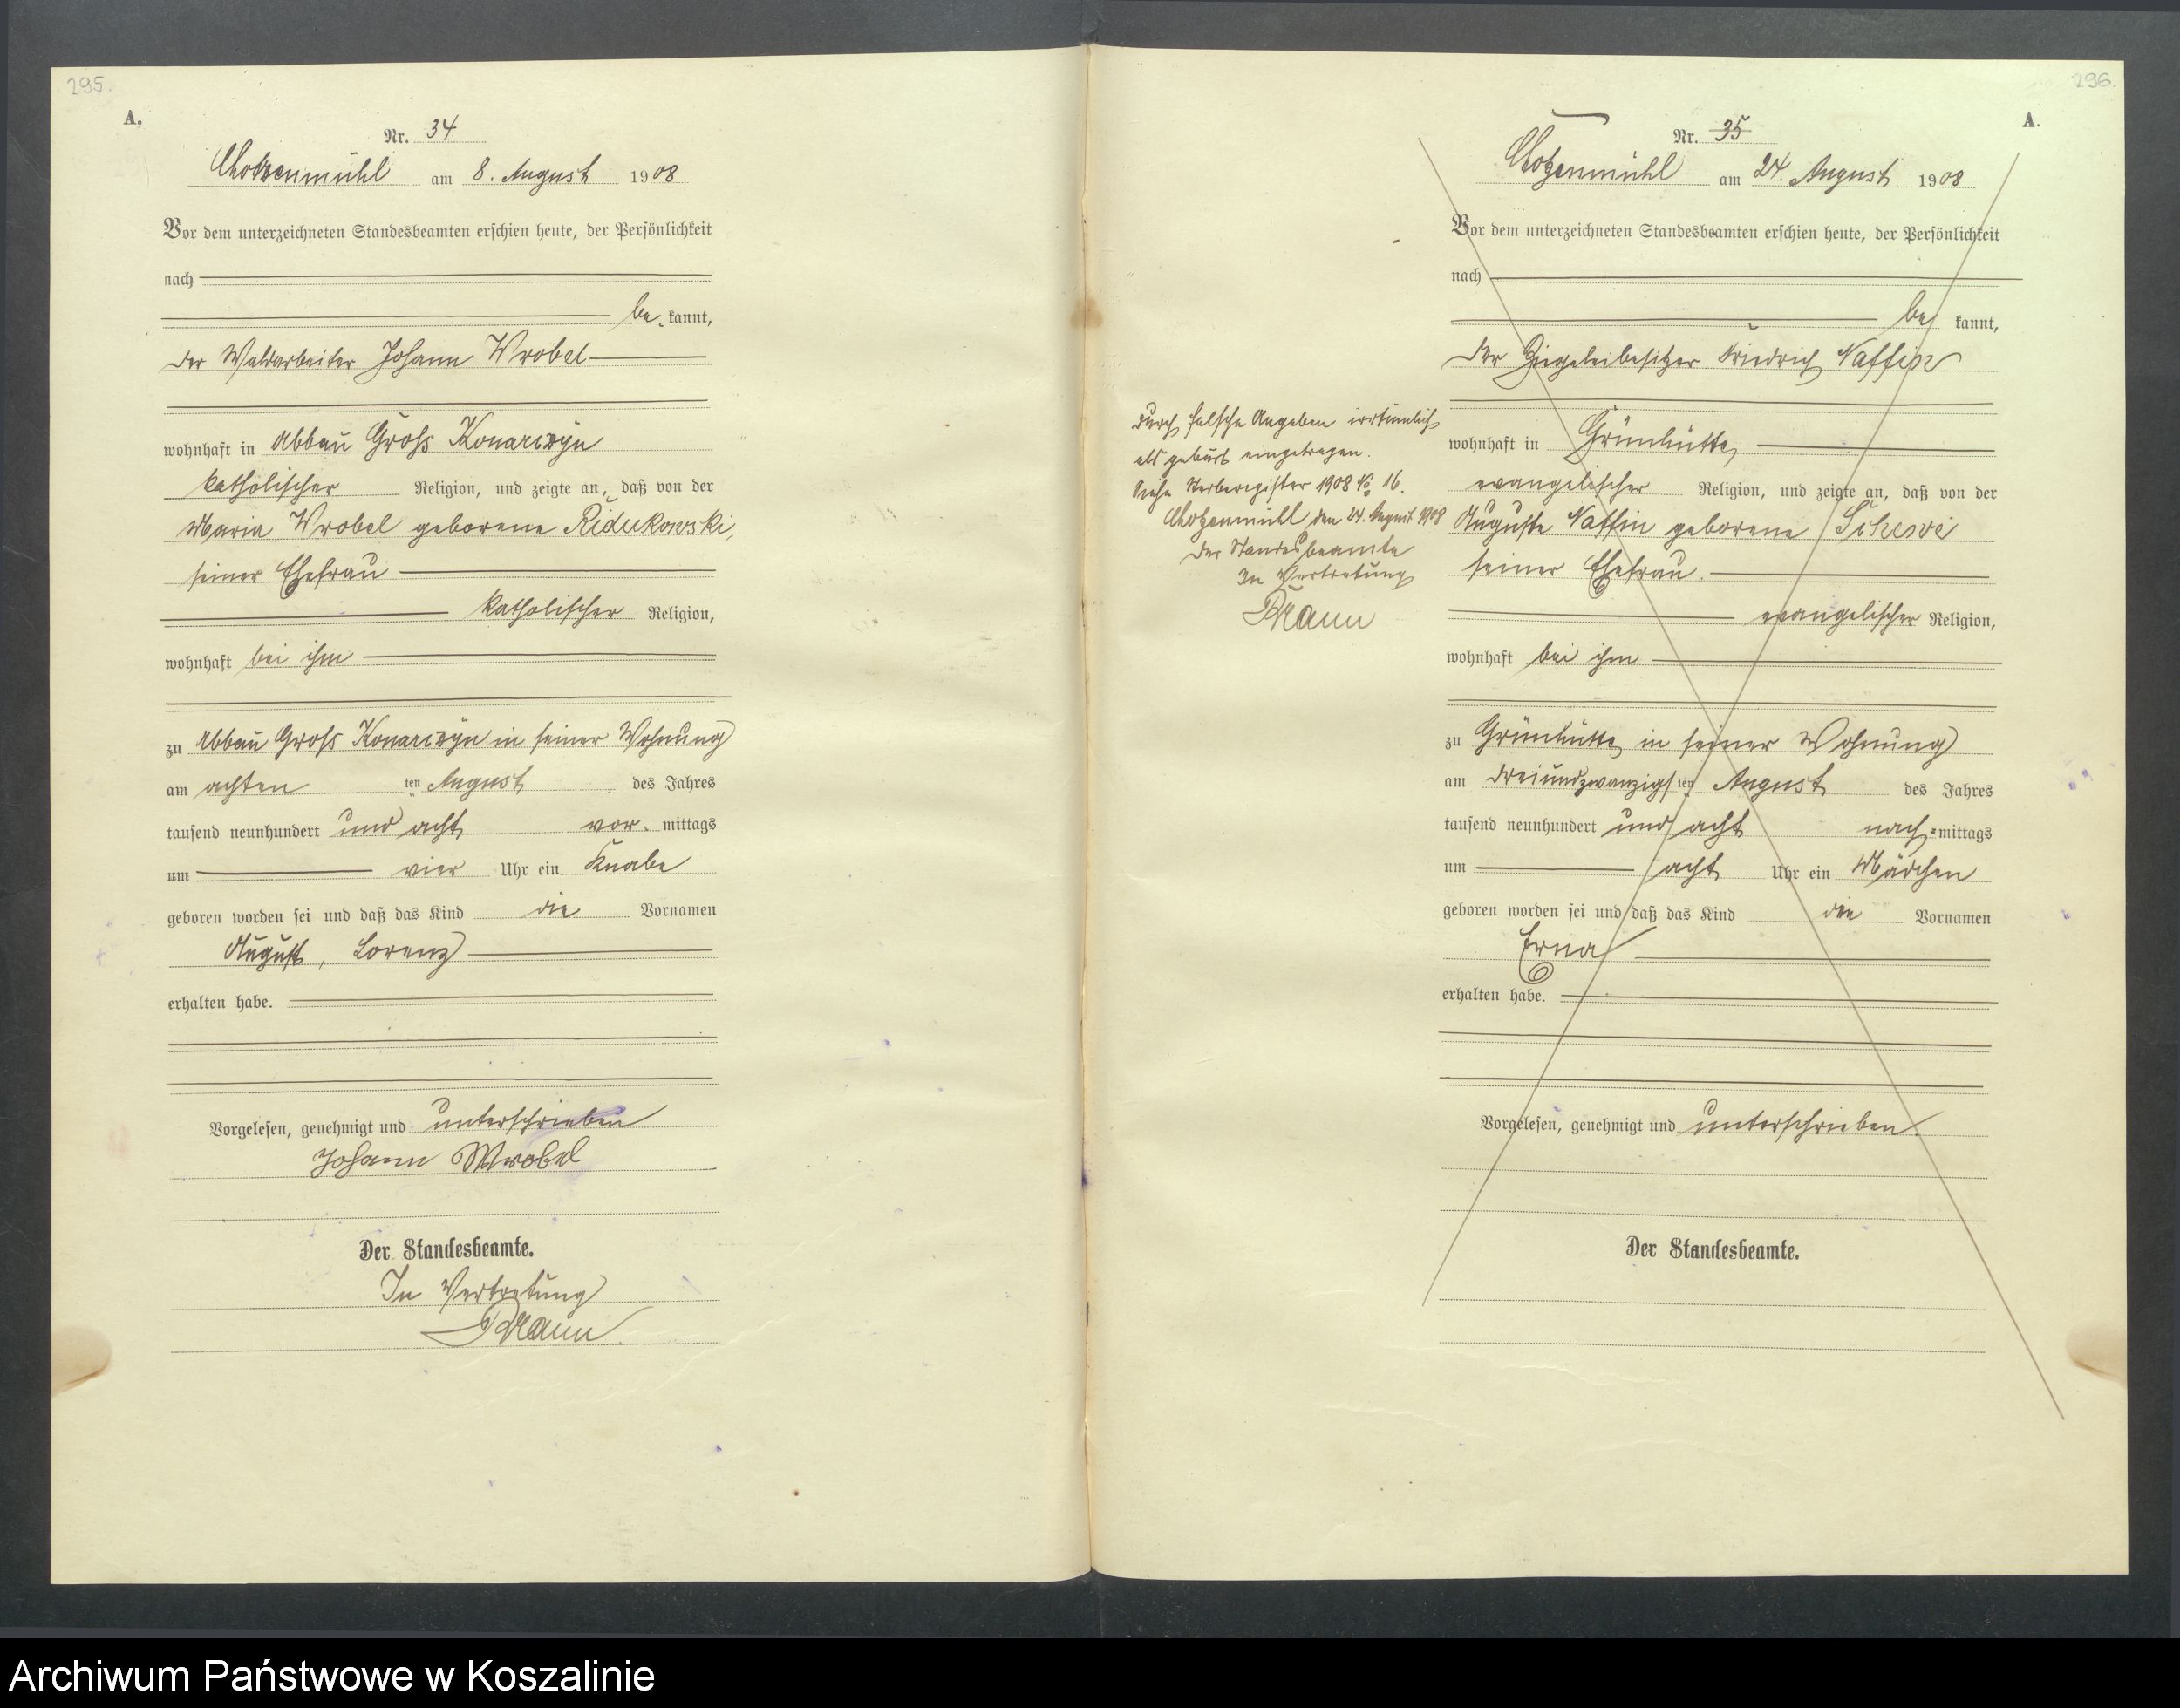 295.
A.
Nr. 34
Chotzenmühl am 8. August 1908
Vor dem unterzeichneten Standesbeamten erschien heute, der Persönlichkeit
nach
be kannt,
der Waldarbeiter Johann Wrobel
wohnhaft in Abbau Gross Konarczyn
katholischer Religion, und zeigte an, daß von der
Maria Wrobel geborene Ridukowski,
seiner Ehefrau
katholischer Religion,
wohnhaft bei ihm
zu Abbau Gross Konarczyn in seiner Wohnung
am achten ten August des Jahres
tausend neunhundert und acht vor mittags
um vier Uhr ein Knabe
geboren worden sei und daß das Kind die Vornamen
August, Lorenz
erhalten habe.
Vorgelesen, genehmigt und unterschrieben
Johann Wrobel
Der Standesbeamte.
In Vertretung
296.
A.
Nr. 35
Chotzenmühl am 24. August 1908
Vor dem unterzeichneten Standesbeamten erschien heute, der Persönlichkeit
nach
be kannt,
der Ziegeleibesitzer Friedrich Naffin
wohnhaft in Grünhütte,
evangelischer Religion, und zeigte an, daß von der
Auguste Naffin geborene
seiner Ehefrau.
evangelischer Religion,
wohnhaft bei ihm
zu Grünhütte, in seiner Wohnung
am dreiundzwanzigsten August des Jahres
tausend neunhundert und acht nach mittags
um acht Uhr ein Mädchen
geboren worden sei und daß das Kind die Vornamen
Erna
erhalten habe.
Vorgelesen, genehmigt und unterschrieben.
Der Standesbeamte.
Durch falsche Angaben irrtümlich
als geburt eingetragen.
Siehe Sterberegister 1908 No 16.
Chotzenmühl, den 24. August 1908
Der Standesbeamte
In Vertretung
Archiwum Państwowe w Koszalinie